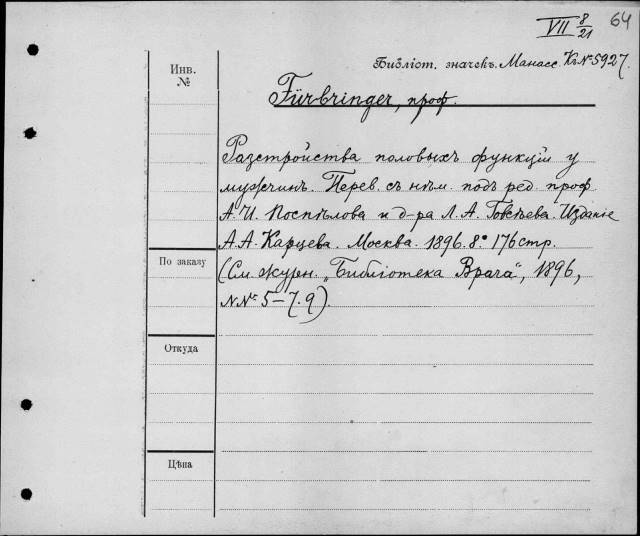 VII 8/21 64
Инв. №
Библіот. значекъ. Манасс. К. № 5927.
Fürbringer, проф.
Разстройства половыхъ функцій у
мужчинъ. Перев. съ нѣм. подъ ред. проф
А. И. Поспѣлова и д-ра Л. А. Говсѣева. Изданіе
А. А. Карцева. Москва. 1896. 8º 176 стр.
По заказу
(См. журн. „Библіотека Врача“, 1896,
№№ 5–7. 9).
Откуда
Цѣна